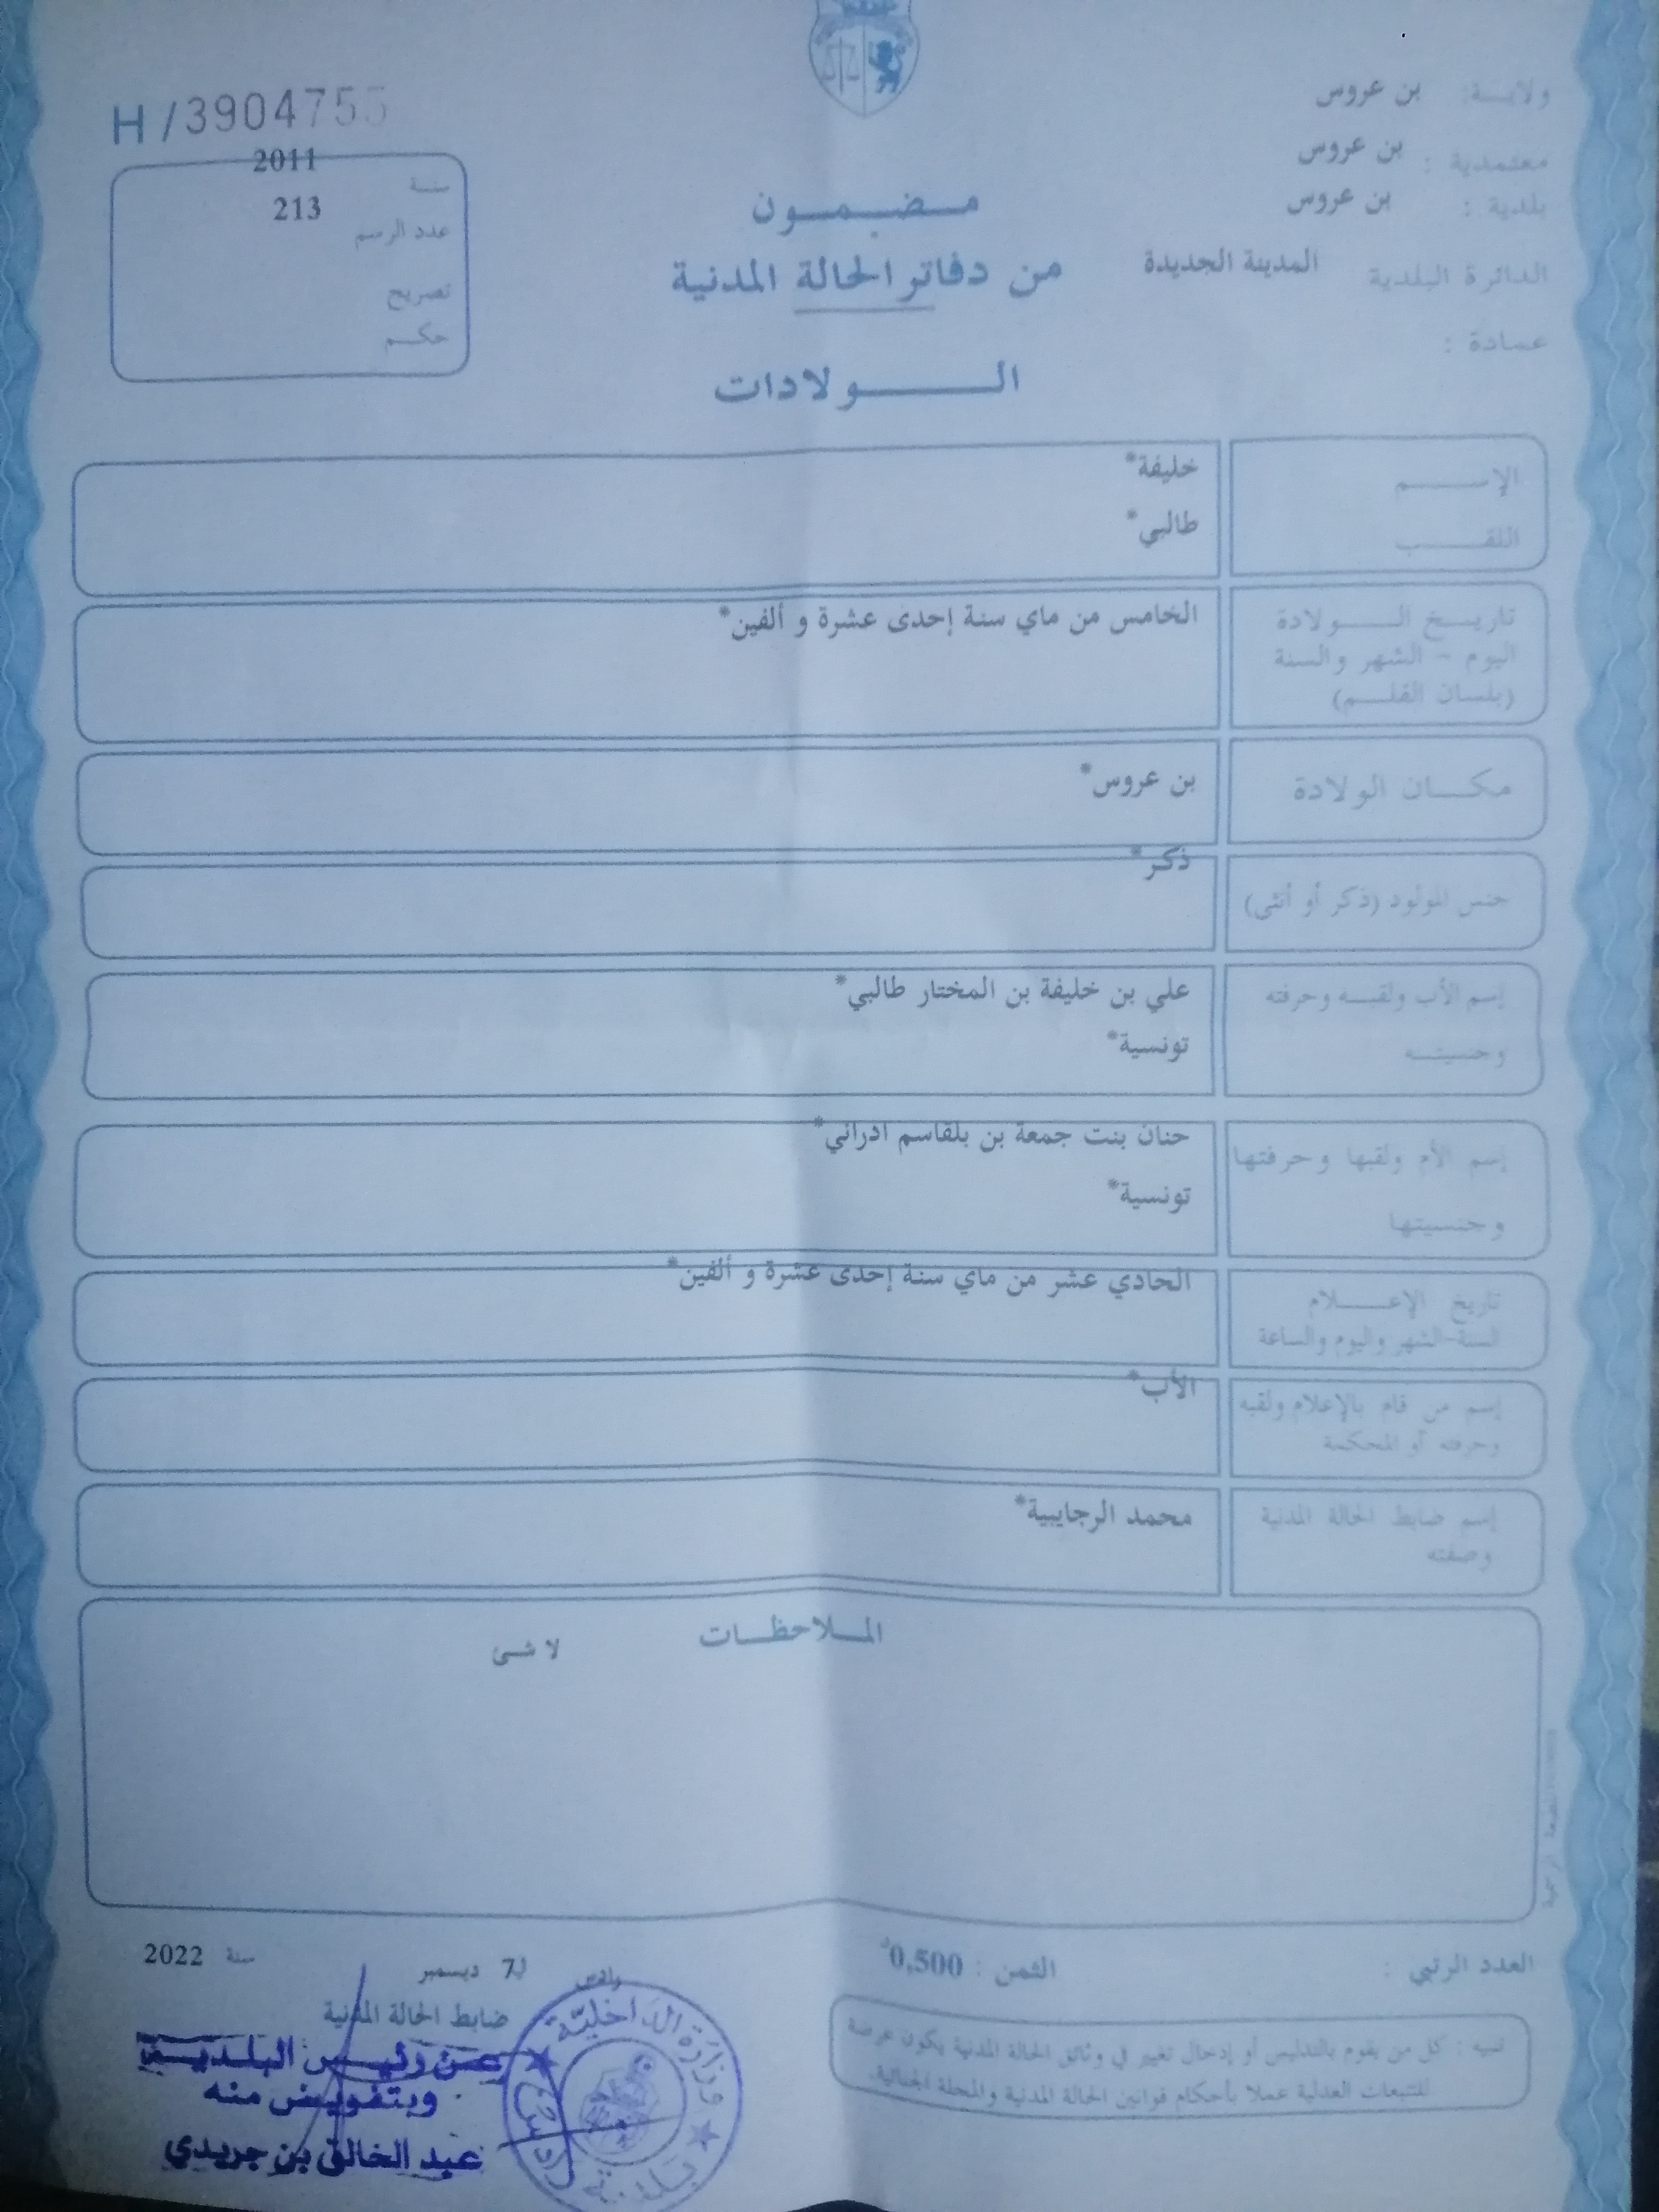 ولايـــة: بن عروس
معتمدية : بن عروس
بلدية : بن عروس
الدائرة البلدية المدينة الجديدة
عمادة :
H/3904755
سنة 2011
عدد الرسم 213
تصريح
حكم
مـضـمـون
من دفاتر الحالة المدنية
الـــولادات
الإســـم خليفة*
اللقـــب طالبي*
تاريــخ الـــولادة الخامس من ماي سنة إحدى عشرة و ألفين*
اليوم - الشهر والسنة
(بلسان القلـــم)
مكـــان الولادة بن عروس*
جنس المولود (ذكر أو أنثى) ذكر*
إسم الأب ولقبـــه وحرفته علي بن خليفة بن المختار طالبي*
وجنسيتـــه تونسية*
إسم الأم ولقبها وحرفتها حنان بنت جمعة بن بلقاسم ادراني*
وجنسيتها تونسية*
تاريخ الإعـــلام الحادي عشر من ماي سنة إحدى عشرة و ألفين*
السنة-الشهر واليوم والساعة
إسم من قام بالإعلام ولقبه الأب*
وحرفته أو المحكمة
إسم ضابط الحالة المدنية محمد الرجايبية*
وصفته
المــلاحظــات
لا شئ
العدد الرتبي :
الثمن : 0,500د
رادس في 7 ديسمبر سنة 2022
ضابط الحالة المدنية
عـن رئيـس البلـديـة
وبتفويـض منه
عبد الخالق بن جريدي
وزارة الداخليّة
بلدية رادس
تنبيه : كل من يقوم بالتدليس أو إدخال تغيير في وثائق الحالة المدنية يكون عرضة
للتتبعات العدلية عملا بأحكام قوانين الحالة المدنية والمجلة الجنائية.